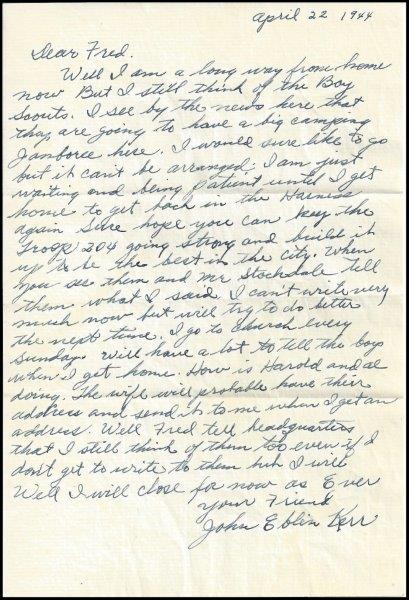 April 22 1944
Dear Fred.
Well I am a long way from home
now But I still think of the Boy
Scouts. I see by the news here that
they are going to have a big camping
Jamboree here. I would sure like to go
but it can't be arranged. I am just
waiting and being patient until I get
home to get back in the Harness
again Sure hope you can keep the
Troop 204 going strong and build it
up to be the best in the city. When
you see them and Mr Stockdale tell
them what I said I can't write very
much now but will try to do better
the next time. I go to church every
Sunday. Will have a lot to tell the boys
when I get home. How is Harold and al
doing. The wife will probable have their
address and send it to me when I get an
address. Well Fred tell headquarters
that I still think of them too even if I
don't get to write to them but I will
Well I will close for now as Ever
your Friend
John Eblin Kerr